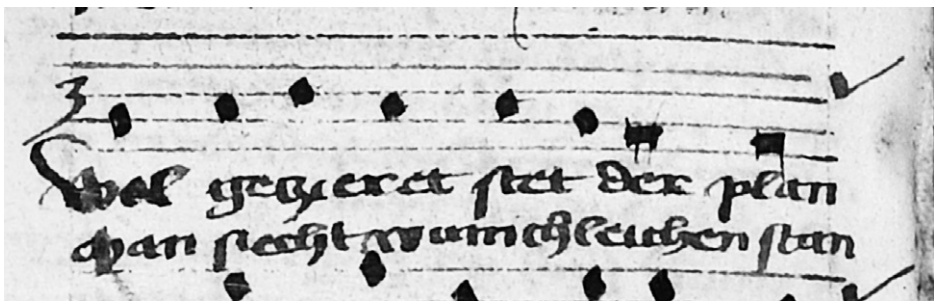 Wol geczieret stet der plan
Man siecht wunichleichen stan